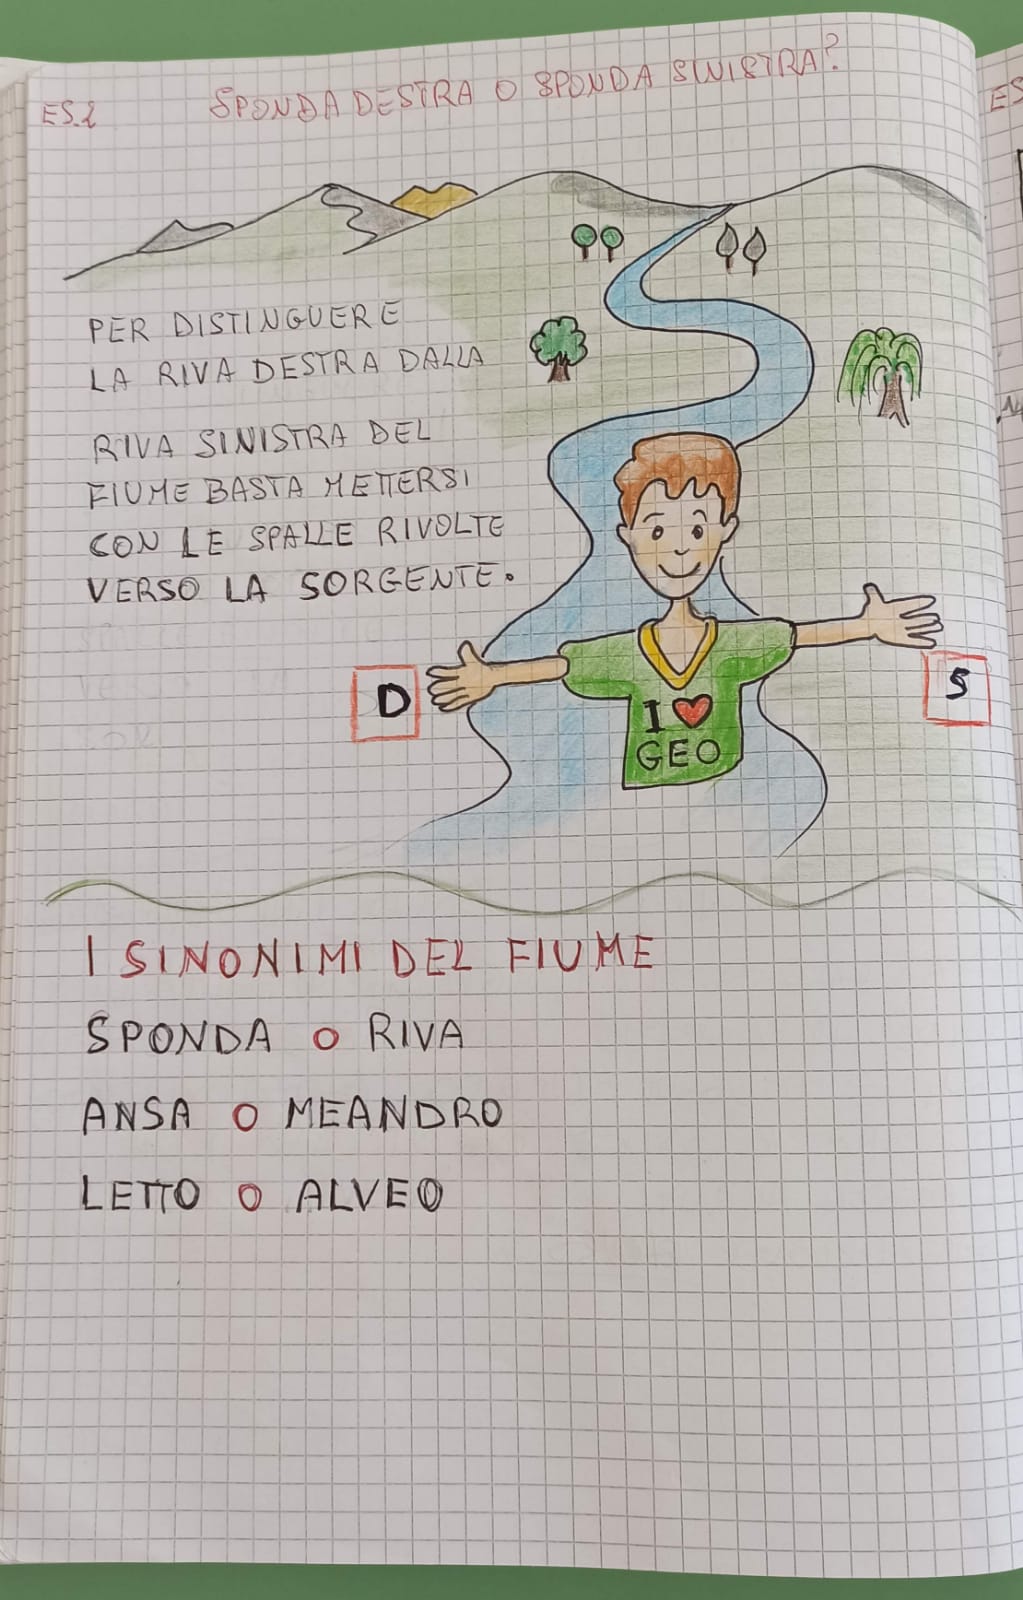 ES.1
SPONDA DESTRA O SPONDA SINISTRA?
PER DISTINGUERE
LA RIVA DESTRA DALLA
RIVA SINISTRA DEL
FIUME BASTA METTERSI
CON LE SPALLE RIVOLTE
VERSO LA SORGENTE.
D
S
I ❤ 
GEO
I SINONIMI DEL FIUME
SPONDA O RIVA
ANSA O MEANDRO
LETTO O ALVEO
ES